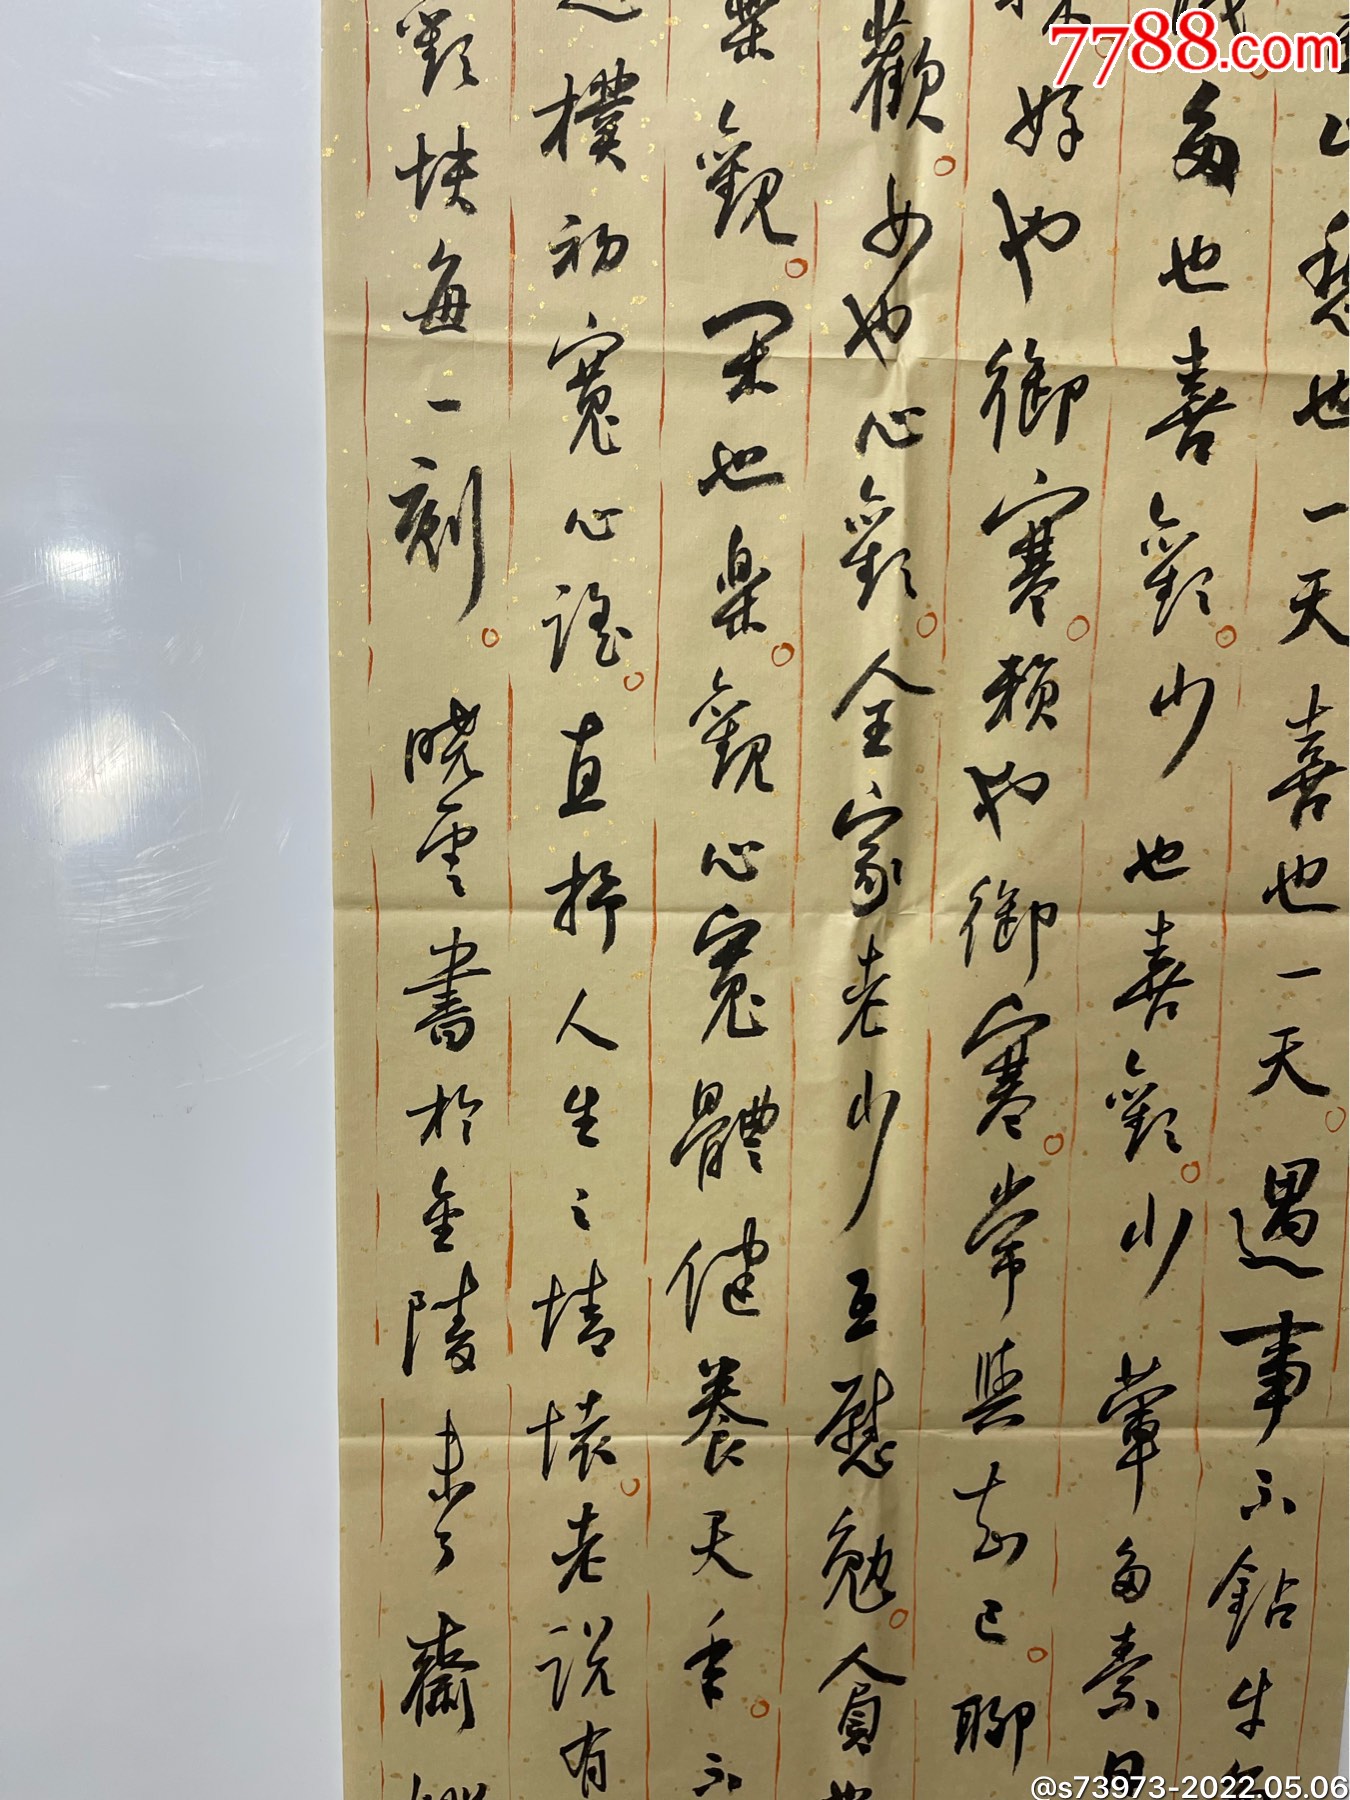 7788.com
山愁也一天喜也一天。遇事不鈷牛
多也喜歡。少也喜歡。少葷多素日
好也御寒。賴也御寒。常與知己。聊
歡。女也心歡。全家老少互慰勉。貧
樂觀。用也樂。觀心寬體健養天年。不
樸初寬心謠。直抒人生之情懷。老說有
歡快每一刻。曉雲書於金陵未了齋
@s73973-2022.05.06